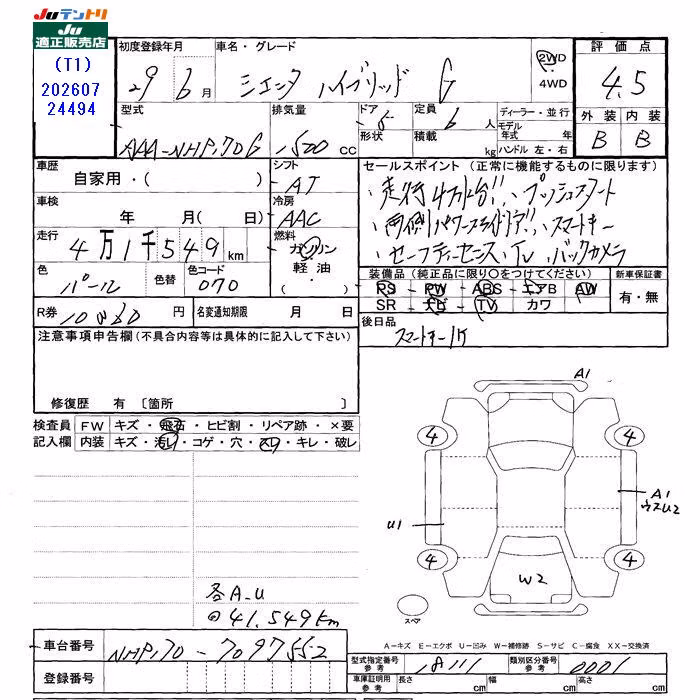 JUテントリ
JU
適正販売店
(T1)
202607
24494
初度登録年月
29年 6月
車名・グレード
シエンタ ハイブリッド G
2WD
4WD
評価点
4.5
外装 内装
B B
型式
AAA-NHP170G
排気量
1500 cc
ドア
5
形状
定員
6人
積載
kg
ディーラー・並行
モデル年式 年
ハンドル 左・右
車歴
自家用・( )
シフト
AT
車検
年 月( 日)
冷房
AAC
走行
4万1千549km
燃料
ガソリン
軽油・( )
色
パール
色替
色コード
070
R券
円
名変通知期限 月 日
セールスポイント (正常に機能するものに限ります)
・走行4万km台!!、プッシュスタート
・両側パワースライドドア!!、スマートキー
・セーフティーセンス、TV、バックカメラ
装備品(純正品に限り○をつけてください)
PS・PW・ABS・エアB・AW
SR・ナビ・TV・カワ
新車保証書
有・無
後日品
スマートキー1ケ
注意事項申告欄(不具合内容等は具体的に記入して下さい)
修復歴 有 〔箇所 〕
検査員記入欄
FW キズ・飛石・ヒビ割・リペア跡・×要
内装 キズ・汚レ・コゲ・穴・スレ・キレ・破レ
A1
4
4
A1
ウスU2
U1
4
4
W2
スペア
各A-U
41,549km
A-キズ E-エクボ U-凹み W-補修跡 S-サビ C-腐食 XX-交換済
車台番号
NHP170-7097552
登録番号
型式指定番号
参考
18111
類別区分番号
参考
0001
車庫証明用
参考
長さ cm
幅 cm
高さ cm